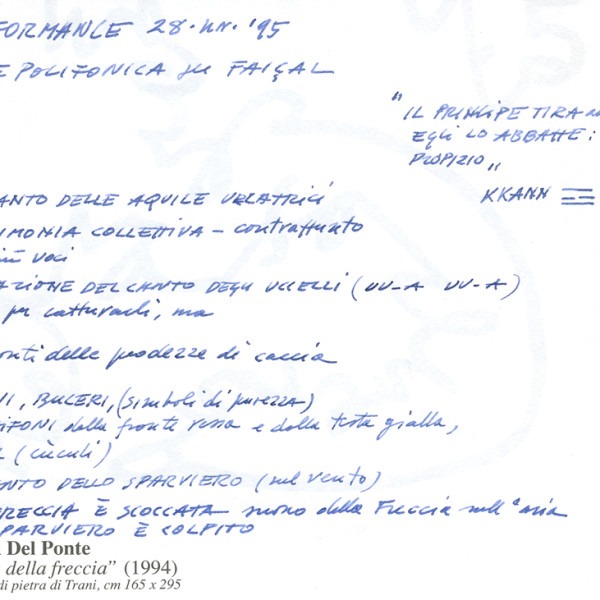 FORMANCE 28·NN.'95
E POLIFONICA su FAIÇAL
"IL PRINCIPE TIRA
EGLI LO ABBATTE:
PROPIZIO"
KKANN
ANTO DELLE AQUILE URLATRICI
IMONIA COLLETTIVA – contrappunto
più voci
AZIONE DEL CANTO DEGLI UCCELLI (UU-A UU-A)
per catturarli, ma
onti delle prodezze di caccia
NI, BUCERI, (simboli di purezza)
IFONI dalla fronte rossa e dalla testa gialla,
(cuculi)
NTO DELLO SPARVIERO (nel vento)
FRECCIA È SCOCCATA suono della Freccia nell'aria
SPARVIERO È COLPITO
Del Ponte
della freccia" (1994)
di pietra di Trani, cm 165 x 295